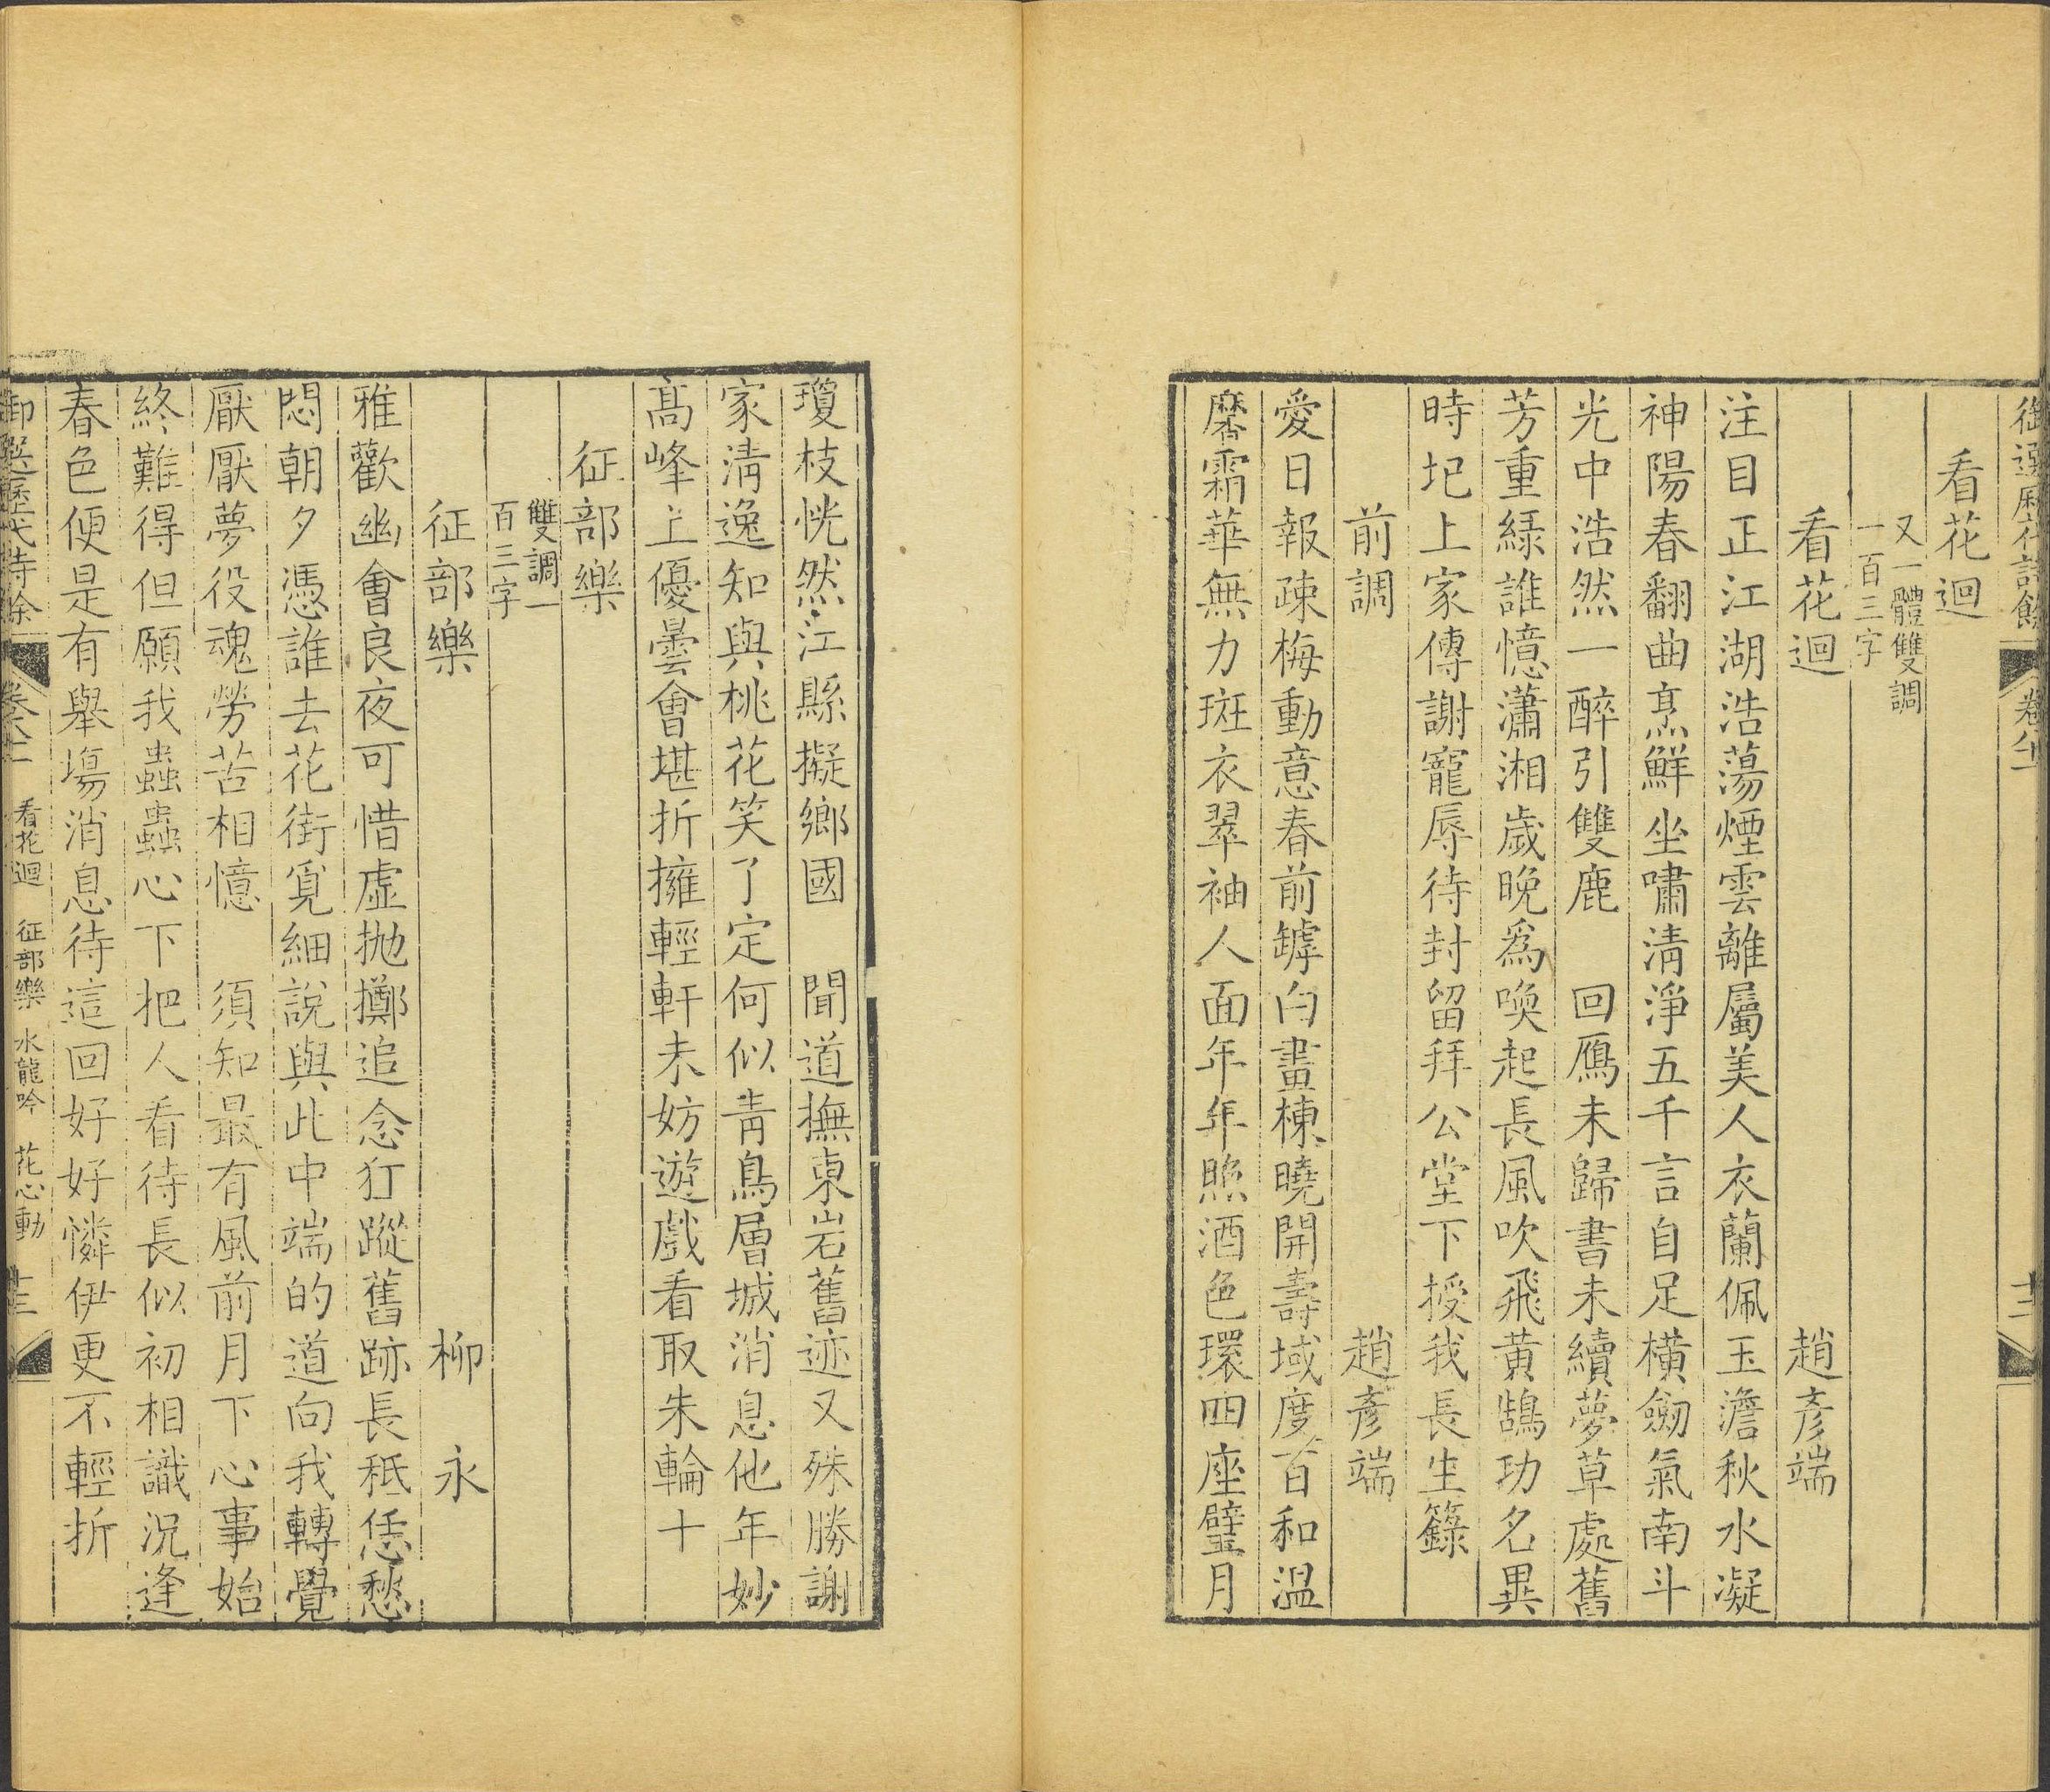 御選歷代詩餘 卷 十二
看花迴
又一體雙調
一百三字
看花迴 趙彥端
注目正江湖浩蕩煙雲離屬美人衣蘭佩玉澹秋水凝
神陽春翻曲烹鮮坐嘯淸淨五千言自足橫劒氣南斗
光中浩然一醉引雙鹿 回鴈未歸書未續夢草處舊
芳重綠誰憶瀟湘歲晚爲喚起長風吹飛黃鵠功名異
時圯上家傳謝寵辱待封留拜公堂下授我長生籙
前調 趙彥端
愛日報疎梅動意春前罅白畫棟曉開壽域度百和溫
黁霜華無力斑衣翠袖人面年年照酒色環四座璧月
瓊枝恍然江縣擬鄉國 聞道撫東岩舊迹又殊勝謝
家淸逸知與桃花笑了定何似靑鳥層城消息他年妙
高峰上優曇會堪折擁輕軒未妨遊戲看取朱輪十
征部樂
雙調一
百三字
征部樂 柳永
雅歡幽會良夜可惜虛抛擲追念狂蹤舊跡長秪恁愁
悶朝夕憑誰去花街覓細說與此中端的道向我轉覺
厭厭夢役魂勞苦相憶 須知最有風前月下心事始
終難得但願我蟲蟲心下把人看待長似初相識況逢
春色便是有舉塲消息待這回好好憐伊更不輕折
御選歷代詩餘 看花迴 征部樂 水龍吟 花心動 十三